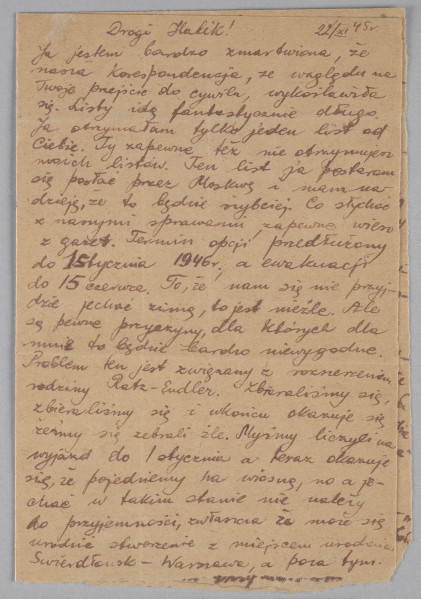 Drogi Halik! 22/XI 45r
Ja jestem bardzo zmartwiona, że
nasza korespondencja, ze względu na
Twoje przejście do cywila, wykoślawiła
się. Listy idą fantastycznie długo.
Ja otrzymałam tylko jeden list od
Ciebie. Ty zapewne też nie otrzymujesz
moich listów. Ten list ja postaram
się posłać przez Moskwę i mam na-
dzieję, że to będzie szybciej. Co słychać
z naszymi sprawami, zapewne wiesz
z gazet. Termin opcji przedłużony
do 1 Stycznia 1946r, a ewakuacji
do 15 czerwca. To, że nam się nie przyj-
dzie jechać zimą, to jest nieźle. Ale
są pewne przyczyny, dla których dla
mnie to będzie bardzo niewygodne.
Problem ten jest związany z rozszerzeniem
rodziny Ratz-Endler. Zbieraliśmy się,
zbieraliśmy się i wkońcu okazuje się
żeśmy się zebrali źle. Myśmy liczyli na
wyjazd do 1 stycznia a teraz okazuje
się, że pojedziemy na wiosnę, no a je-
chać w takim stanie nie należy
do przyjemności, zwłaszcza że może się
urodzić stworzenie z miejscem urodzenia
Swierdłowsk - Warszawa, a poza tym